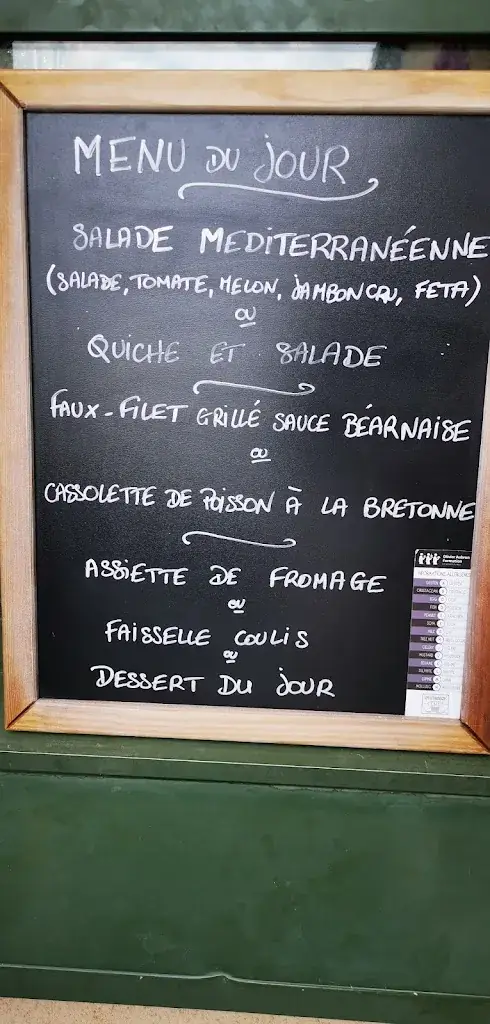 MENU DU JOUR
SALADE MEDITERRANÉENNE
(SALADE, TOMATE, MELON, JAMBON CRU, FETA)
OU
QUICHE ET SALADE
FAUX-FILET GRILLÉ SAUCE BÉARNAISE
OU
CASSOLETTE DE POISSON À LA BRETONNE
ASSIETTE DE FROMAGE
OU
FAISSELLE COULIS
OU
DESSERT DU JOUR